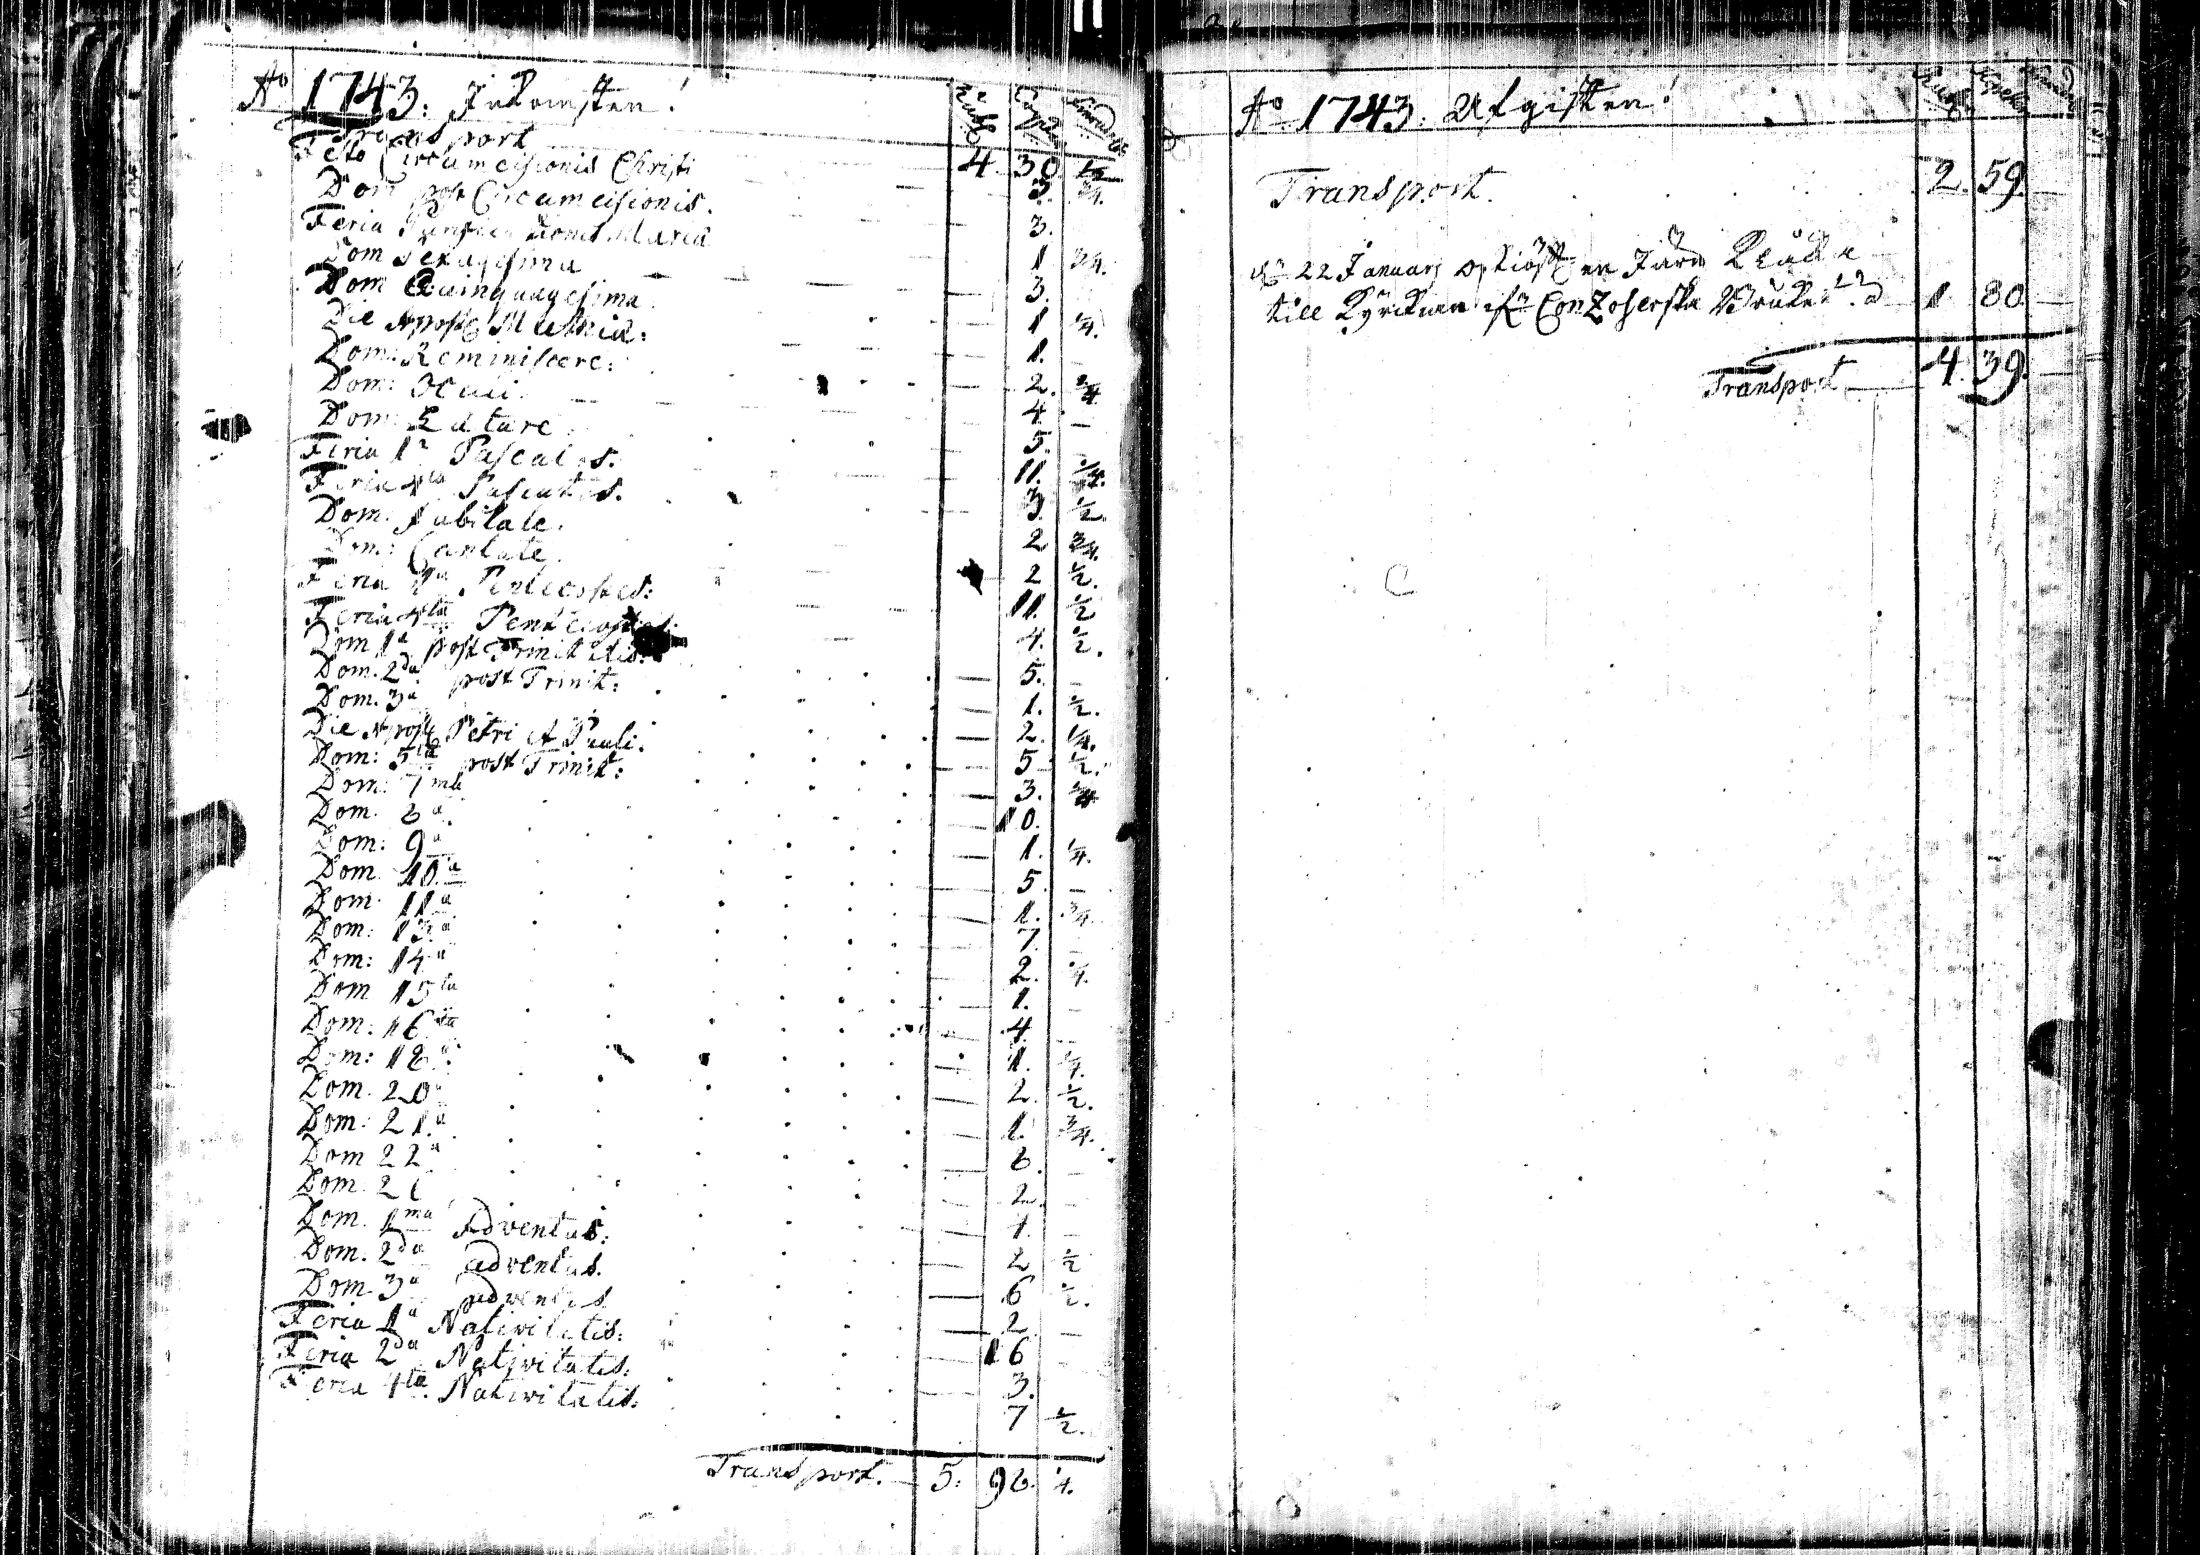 Ao 1743: Inkomsten!
Transport 4 30 1/2
Festo Circumcisionis Christi 3. 3/4.
Dom post Circumcisionis. 3.
Feria Purificationis Mariæ 1 3/4.
Dom Sexagesima 3.
Dom Quinquagesima 1 1/4.
Die Apost Mathiæ: 1.
Dom: Reminiscere: 2. 3/4
Dom: Oculi. 4 —
Dom: Lætare 5.
Feria 1a Pascatos. 11. 1/4.
Feria 4ta Pascatos. 3. 1/2.
Dom. Jubilate. 2 3/4.
Dom: Cantate. 2 1/2.
Feria Pentecostes: 11. 1/2
Feria 4ta Pentecostes: 4. 1/2.
Dom 1a post Trinitatis: 5. —
Dom. 2da post Trinit: 1. 1/2.
Dom. 3a 2. 1/4.
Die Apost Petri et Pauli. 5 1/2.
Dom: 5ta post Trinit: 3. 3/4
Dom: 7ma 10.
Dom. 8a. 1. 1/4.
Dom: 9a 5. —
Dom. 10.a 1. 3/4.
Dom. 11a 7.
Dom: 13.a 2. 1/4.
Dom: 14a 1.
Dom 15ta 4.
Dom: 16ta 1. 1/4.
Dom: 18a. 2. 1/2.
Dom. 20a 1. 3/4.
Dom: 21.a 8. —
Dom 22a 2. —
Dom. 2 1. —
Dom. 1ma Adventus: 2 1/2
Dom. 2da adventus. 6 1/2.
Dom. 3a adventus 2 —
Feria 1a Nativitatis: 16
Feria 2da Nativitatis: 3.
Feria 4ta. Nativitatis: 7 1/2.
Transport. 5: 98. 1/4.
Ao 1743: Utgiften!
Transport. 2. 59. —
22 Januarj en
till Kyrckan 1 80 —
Transport 4. 39. —